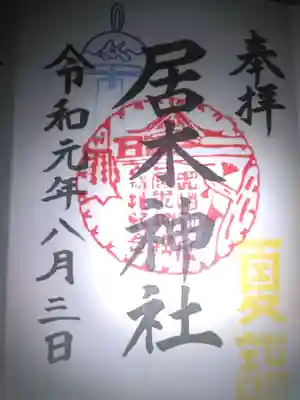 奉拝
居木神社
令和元年八月三日